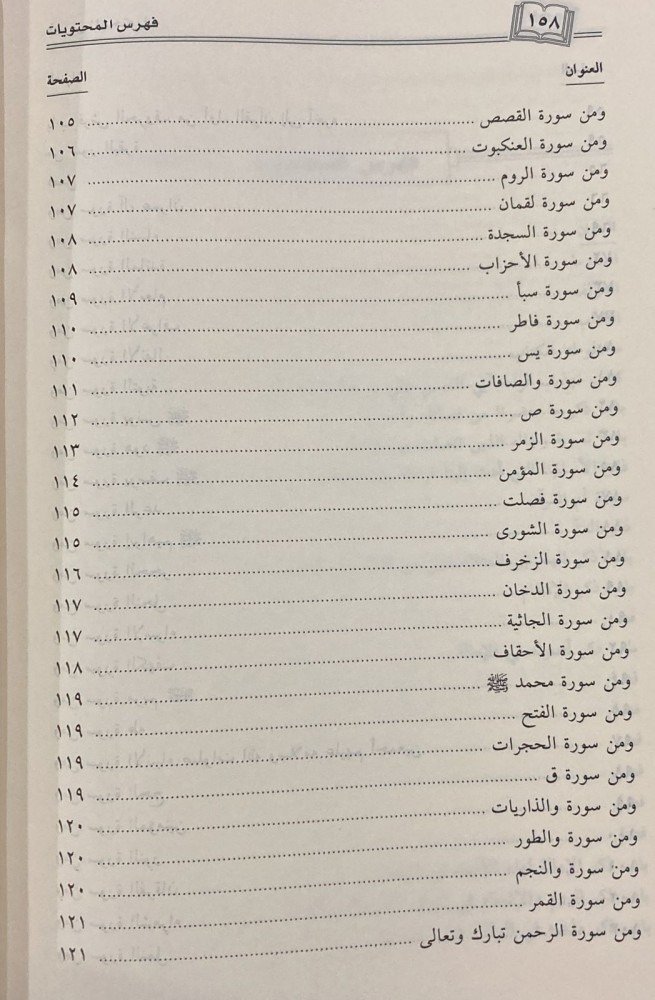 ١٥٨ فهرس المحتويات
العنوان الصفحة
ومن سورة القصص ........ ١٠٥
ومن سورة العنكبوت ........ ١٠٦
ومن سورة الروم ........ ١٠٧
ومن سورة لقمان ........ ١٠٧
ومن سورة السجدة ........ ١٠٨
ومن سورة الأحزاب ........ ١٠٨
ومن سورة سبأ ........ ١٠٩
ومن سورة فاطر ........ ١١٠
ومن سورة يس ........ ١١٠
ومن سورة والصافات ........ ١١١
ومن سورة ص ........ ١١٢
ومن سورة الزمر ........ ١١٣
ومن سورة المؤمن ........ ١١٤
ومن سورة فصلت ........ ١١٥
ومن سورة الشورى ........ ١١٥
ومن سورة الزخرف ........ ١١٦
ومن سورة الدخان ........ ١١٧
ومن سورة الجاثية ........ ١١٧
ومن سورة الأحقاف ........ ١١٨
ومن سورة محمد ﷺ ........ ١١٩
ومن سورة الفتح ........ ١١٩
ومن سورة الحجرات ........ ١١٩
ومن سورة ق ........ ١١٩
ومن سورة والذاريات ........ ١٢٠
ومن سورة والطور ........ ١٢٠
ومن سورة والنجم ........ ١٢٠
ومن سورة القمر ........ ١٢١
ومن سورة الرحمن تبارك وتعالى ........ ١٢١